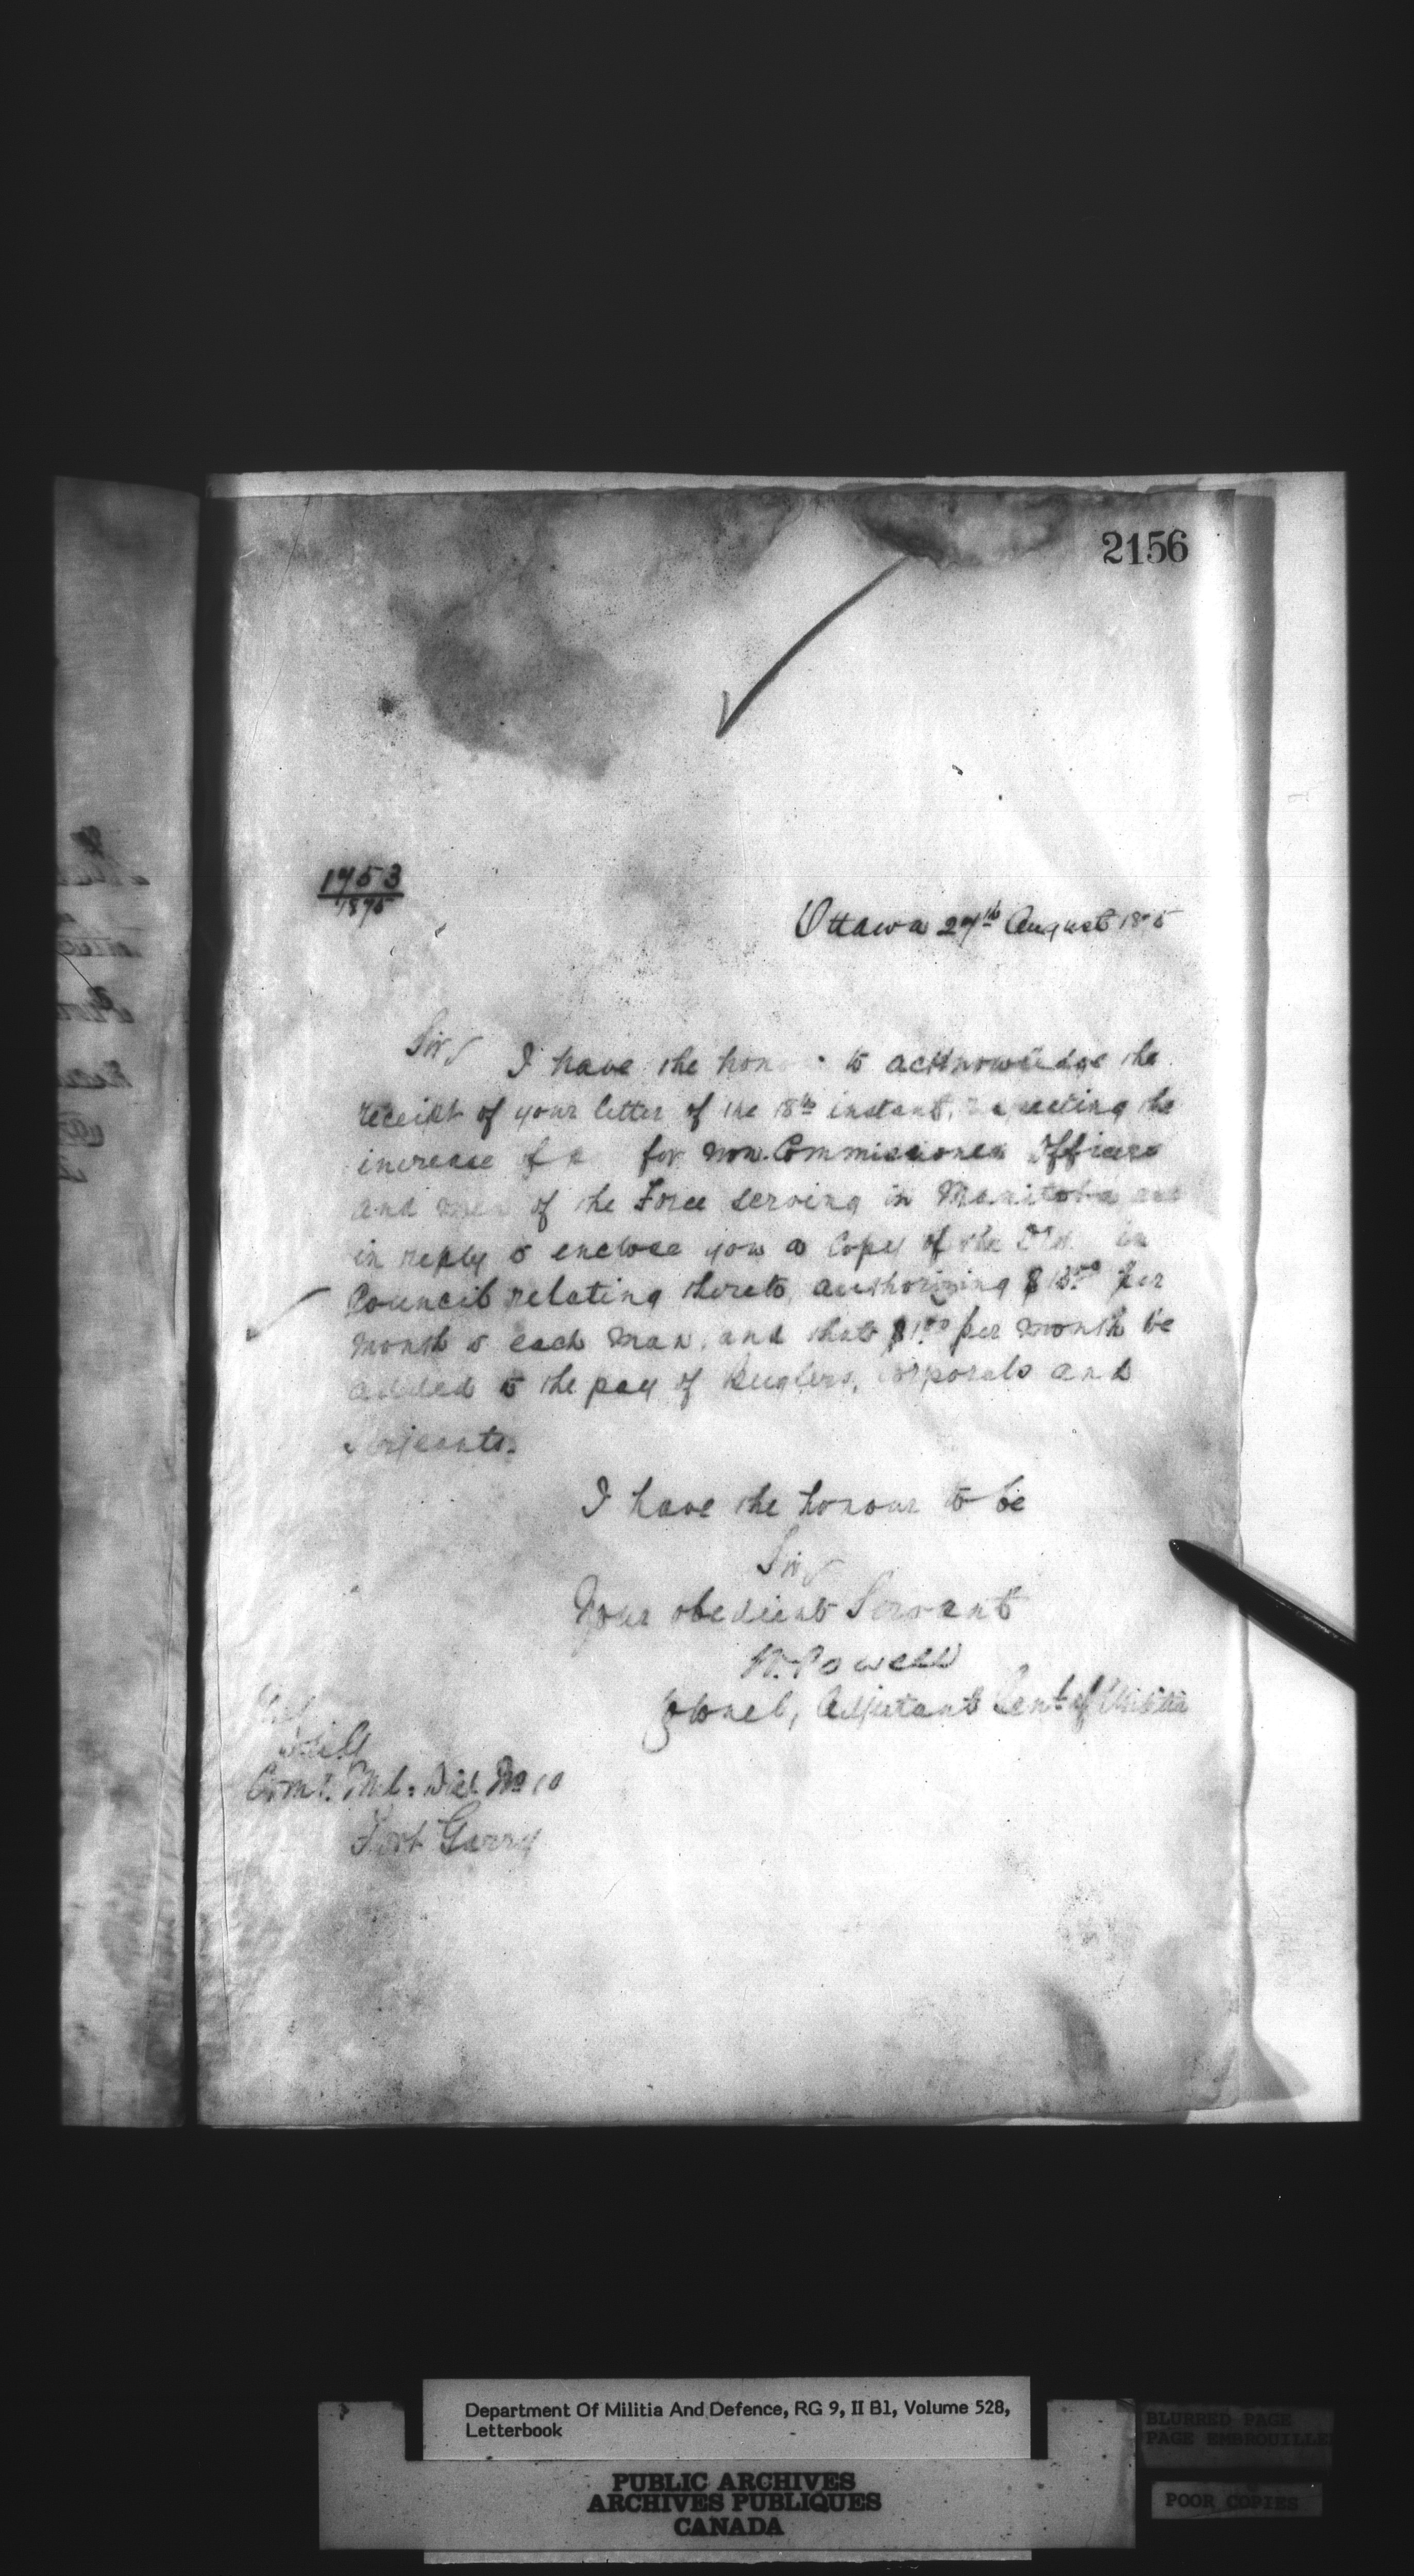 2156
1753
1875
Ottawa 27th August 1875
Sir,
I have the hon to acknowledge the
receipt of your letter of the 18th instant, respecting the
increase of for non. Commissioned Officers
and men of the Force serving in Manitoba and
in reply to enclose you a Copy of the in
Council relating thereto, authorizing per
month to each man, and that $1.00 per month be
added to the pay of Buglers, Corporals and
Serjeants.
I have the honour to be
Sir,
Your obedient Servant
W. Powell
Colonel, Adjutant Genl. of Militia
Comt. Mil: Dist. No 10
Fort Garry
Department Of Militia And Defence, RG 9, II B1, Volume 528,
Letterbook
PUBLIC ARCHIVES
ARCHIVES PUBLIQUES
CANADA
BLURRED PAGE
PAGE EMBROUILLE
POOR COPIES